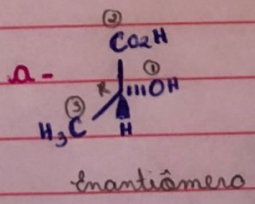 ②
CO2H
a-
R
①
OH
③
H3C
H
Enantiômero